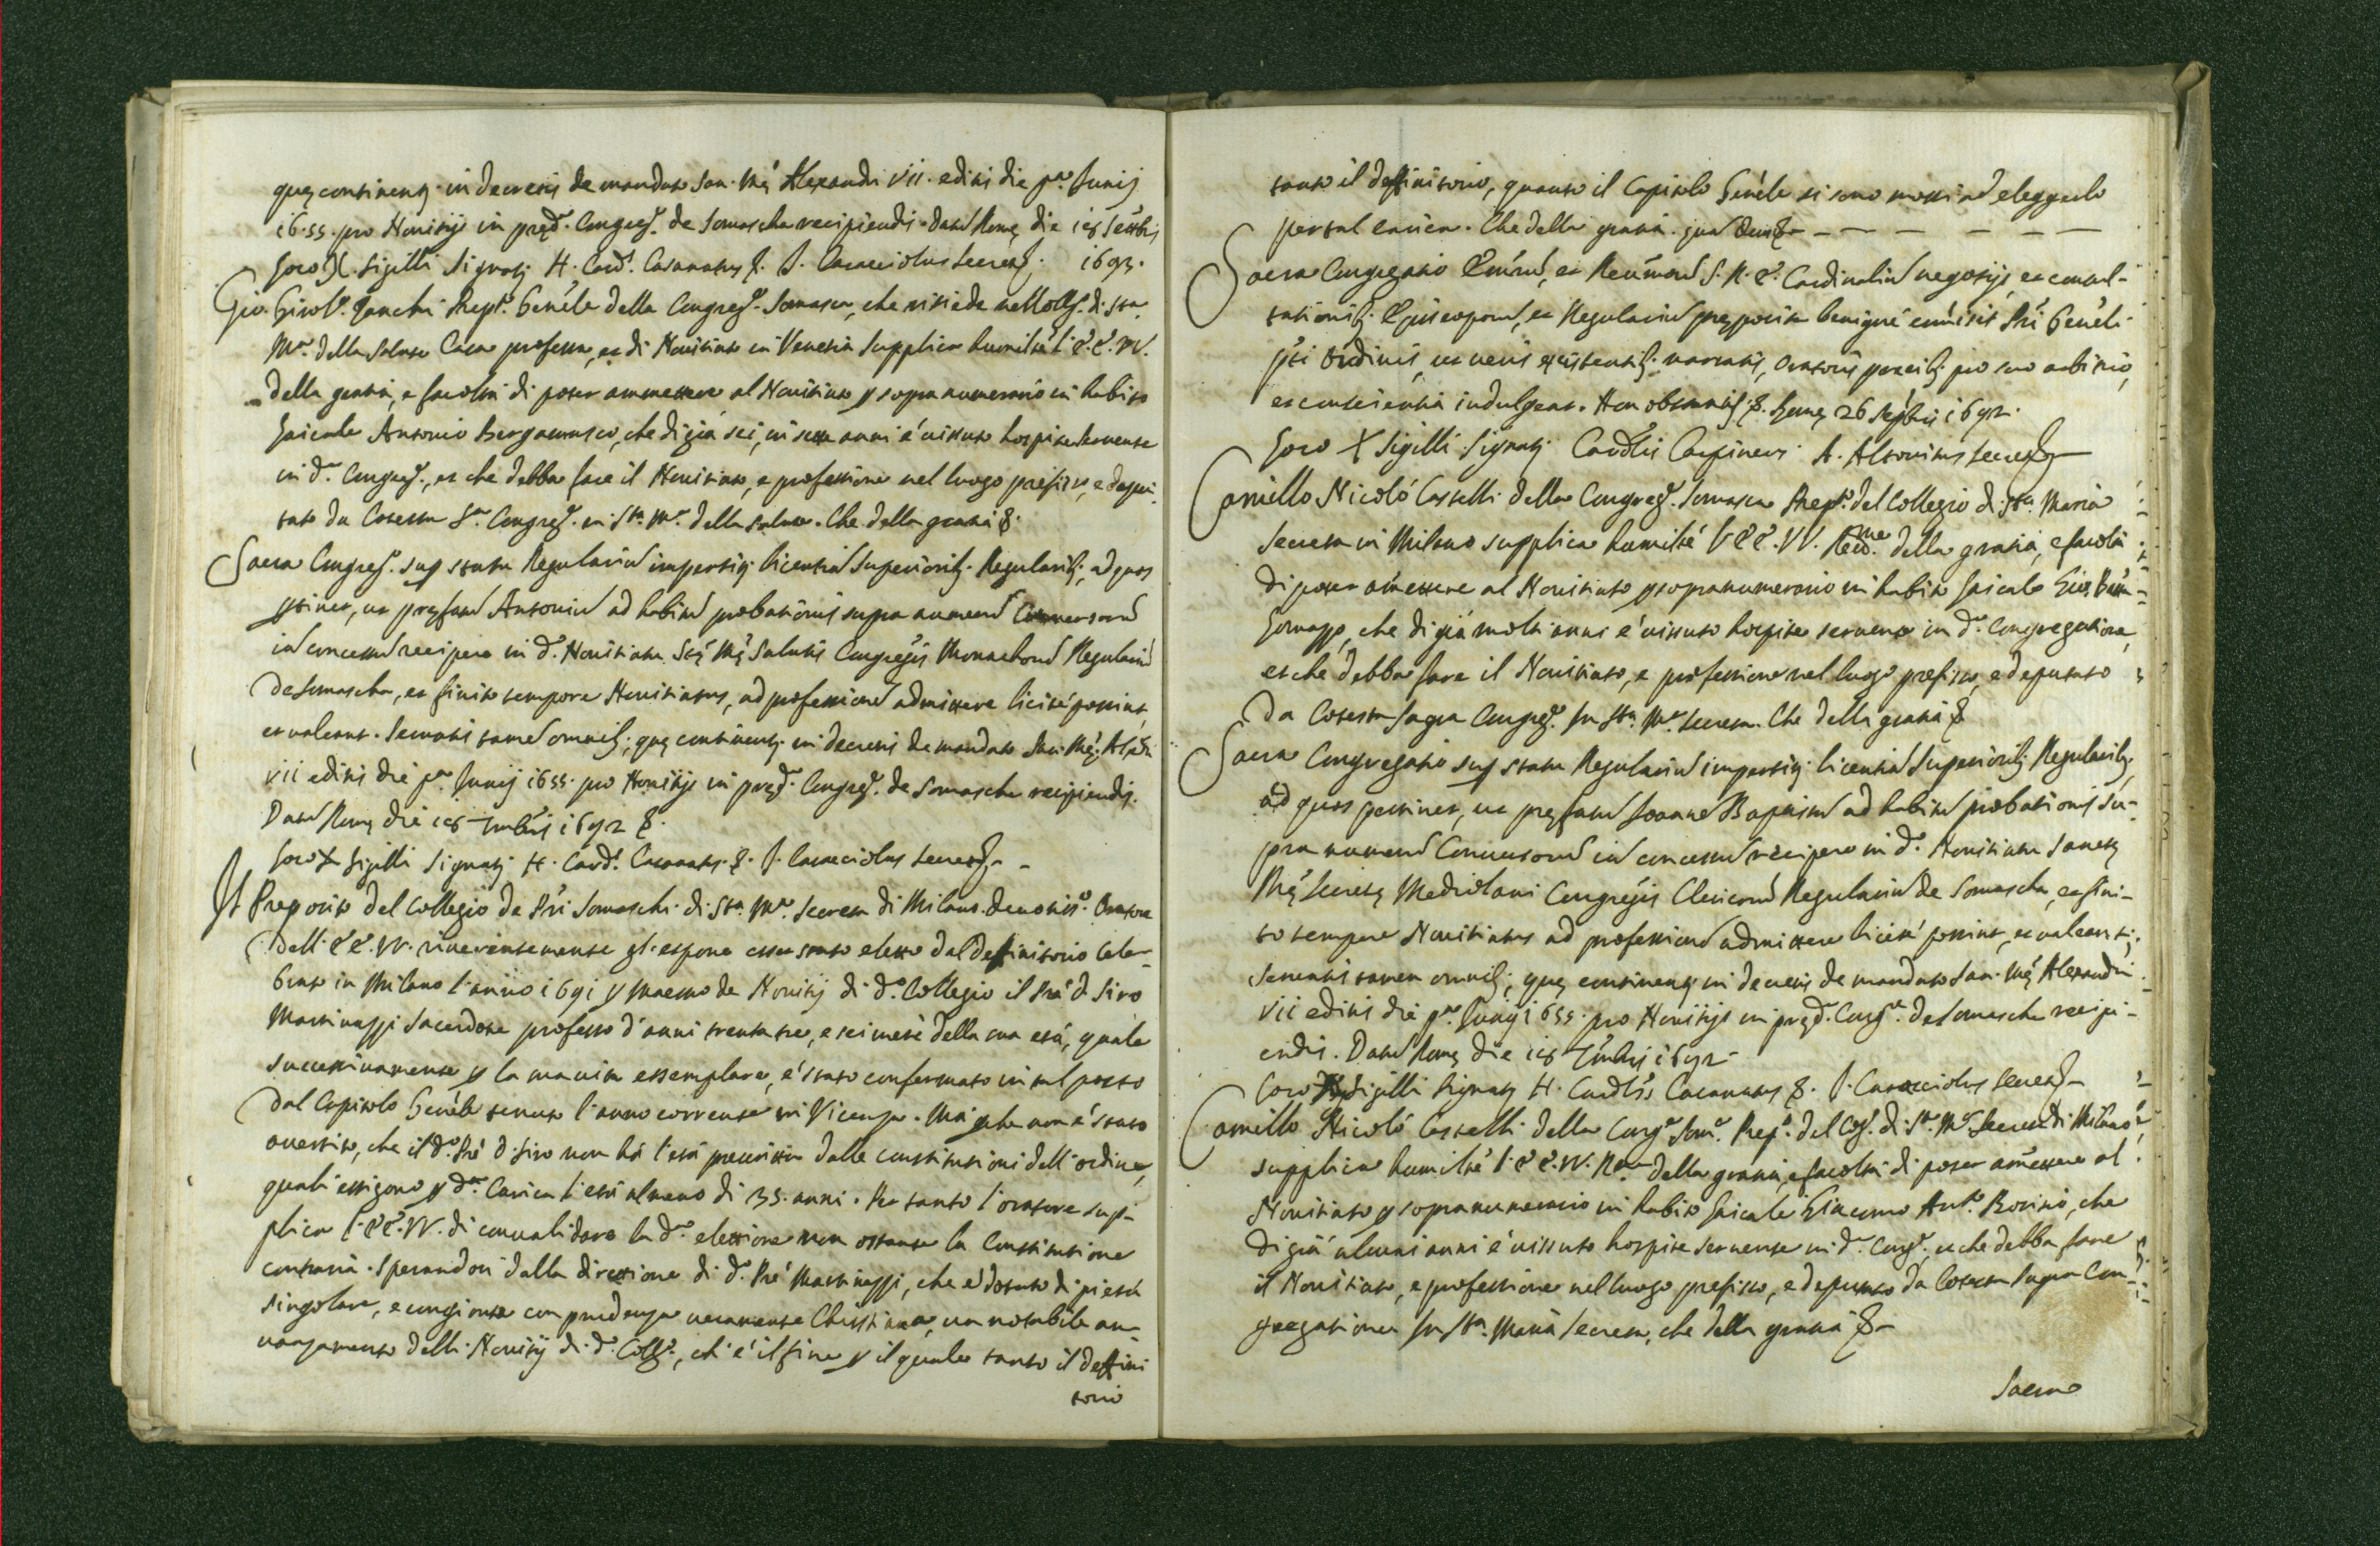 quę continent.' in decretis de mandato san. Mę' Alexandri VII. editis die pa. Junij
1655. pro Novitijs in pręd. Congreg. de Somascha recipiendis. Dat. Romę die 16 Septbris
Loco X Sigilli Signatj H. Card. Casanatus &. J. Caracciolus Secret. 1692.
Gio. Girol.o Zanchi Prep.to Genele della Congreg. Somasca, che risiede nell Coll.o di Sta.
Ma. della Salute Casa professa, et di Novitiato in Venetia Supplica humilte l'E.E. VV.
della gratia, e facoltà di poter ammettere al Novitiato p sopranumerario in habito
laicale Antonio Bergamasco, che di già sei, in sette anni è vissuto hospite servente
in da. Congreg., et che debba fare il Novitiato, e professione nel luogo prefisso, e depu-
tato da Cotesta Sa. Congreg. in Sta. Ma. della Salute. Che della gratia &.
Sacra Congreg. sup statu Regularium impertitj licentia Superioribj Regularibj, ad quos
ptinet, ut pręfatu Antoniu ad habitu probationis supra numeru Conversoru
in concessu recipere in da. Novitiatu Stę Mę Salutis Congregis Monachoru Regulariu
de Somascha, et finito tempore Novitiatus, ad professione admittere licitè possint,
et valeant. Servatis tame omnibj, quę continentj in decretis de mandato San. Mę. Alexri
VII editis die pa. Junij 1655. pro Novitijs in pręd. Congreg. de Somascha recipiendis.
Datu Romę die 16 Septembris 1692 &.
Loco X Sigilli Signatj H. Card. Casanatus. &. J. Caracciolus Secret. -
Il Preposito del Collegio de Pri Somaschi di Sta. Ma. Secreta di Milano. devotis.o Oratore
dell' EE. VV. riverentemente gl'espone esser stato eletto dal definitorio Cele-
brato in Milano l'anno 1691 p Maestro de Novitij di do. Collegio il Prè D Siro
Martinazzi Sacerdote professo d'anni trenta tre, e sei mesi della sua età, quale
successivamente p la maniera essemplare, è stato confermato in tal posto
dal Capitolo Genele tenuto l'anno corrente in Vicenza. Ma perche non è stato
avertito, che il do. Prè D. Siro non hà l'età prescritta dalle Constitutioni dell'ordine,
quali essigono p da. Carica l'età almeno di 35. anni. Per tanto l'oratore sup-
plica l'EE. VV. di convalidare la da. elettione non ostante la Constitutione
contraria. Sperandosi dalla direttione di do. Prè Martinazzi, che è dotato di pietà
singolare, e congionta con prudenza veramente Christiana, un notabile an-
vanzamento delli Novitij di do. Collo., ch'è il fine p il quale tanto il deffini
torio
tanto il deffinitorio, quanto il Capitolo Genèle si sono mossi ad eleggerlo
per tal carica. Che della gratia. quam Deus &- - - - - - -
Sacra Congregatio Eminu, et Reumoru S. R. E. Cardinaliu negotijs, et consul-
tationibj Episcoporu, et Regulariu pręposita benignè comisit Pri Geneli
pti ordinis, ut veris existentibj narratis, Oratoris precibj pro suo arbitrio,
et conscientia indulgeat. Non obstantibj &. Romę 26 Septbris 1692.
Loco X Sigilli Signatj Cardlis Carpineus A. Altovitus Secret.
Camillo Nicolò Casselli della Congreg. Somasca Prep.to del Collegio di Sta. Maria
Secreta in Milano supplica humiltè l'EE. VV. Reme. della gratia, e facoltà
di poter amettere al Novitiato p sopranumerario in habito laicale Gio. Batta
Gornaggo, che di già molti anni è vissuto hospite servente in da. Congregatione,
et che debba fare il Novitiato, e professione nel luogo prefisso, e deputato
da Cotesta Sagra Congreg. In Sta. Ma. Secreta. Che della gratia &
Sacra Congregatio sup statu Regulariu impertitj licentia Superioribj Regularibj,
ad quos pertinet, ut pręfatu Joanne Baptistu ad habitu probationis Su-
pra numeru Conversoru in concessu recipere in do. Novitiatu Sanctę
Mę Secretę Mediolani Congregis Clericoru Regulariu de Somascha, et fini-
to tempore Novitiatus ad professione admittere licitè possint, et valeant;
Servatis tamen omnibj, quę continentj in decretis de mandato San. Mę Alexandri
VII editis die pa. Junij 1655. pro Novitijs in pręd. Cong.e de Somascha recipi-
endis. Datu Romę die 16 Septmbris 1692-
Loco X Sigilli Signatj H. Cardlis Casanatus &. J. Caracciolus Secret.
Camillo Nicolò Casselli della Cong.e Soma. Prep.o del Col. di Sta. Ma. Secreta di Milano,
supplica humiltè l'EE. VV. Rme. della gratia, e facoltà di poter amettere al
Novitiato p sopranumerario in habito laicale Giacomo Ant.o Bovino, che
di già alcuni anni è vissuto hospite servente in da. Cong.e, et che debba fare
il Novitiato, e professione nel luogo prefisso, e deputato da Cotesta Sagra Con-
gregatione In Sta. Maria Secreta, che della gratia &-
Sacra